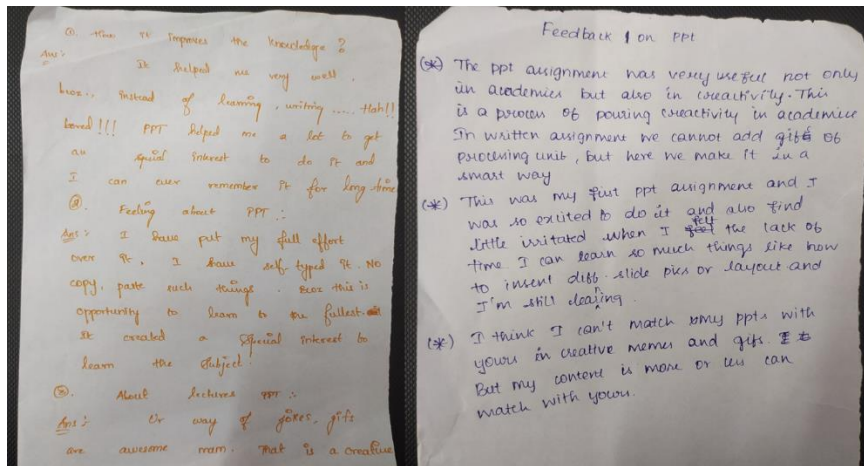 ①. How it improves the knowledge?
Ans:- It helped me very well.
bcoz., instead of learning, writing ..... Hah!!
bored!!! PPT helped me a lot to get
an special interest to do it and
I can ever remember it for long time
②. Feeling about PPT :.
Ans:- I have put my full effort
over it, I have self typed it. No
copy, paste such things. Bcoz this is
opportunity to learn to the fullest.
It created a special interest to
learn the subject.
③. About lectures PPT :.
Ans:- Ur way of jokes, gifs
are awesome mam. That is a creative
Feedback on PPT
(*) The ppt assignment was very useful not only
in academics but also in creactivity. This
is a process of pouring creactivity in academics
In written assignment we cannot add gifs of
processing unit, but here we make it in a
smart way
(*) This was my first ppt assignment and I
was so exited to do it and also find
little irritated when I felt the lack of
time I can learn so much things like how
to insert diff. slide pics or layout and
I'm still learning.
(*) I think I can't match my ppts with
yours in creative memes and gifs.
But my content is more or less can
match with yours.